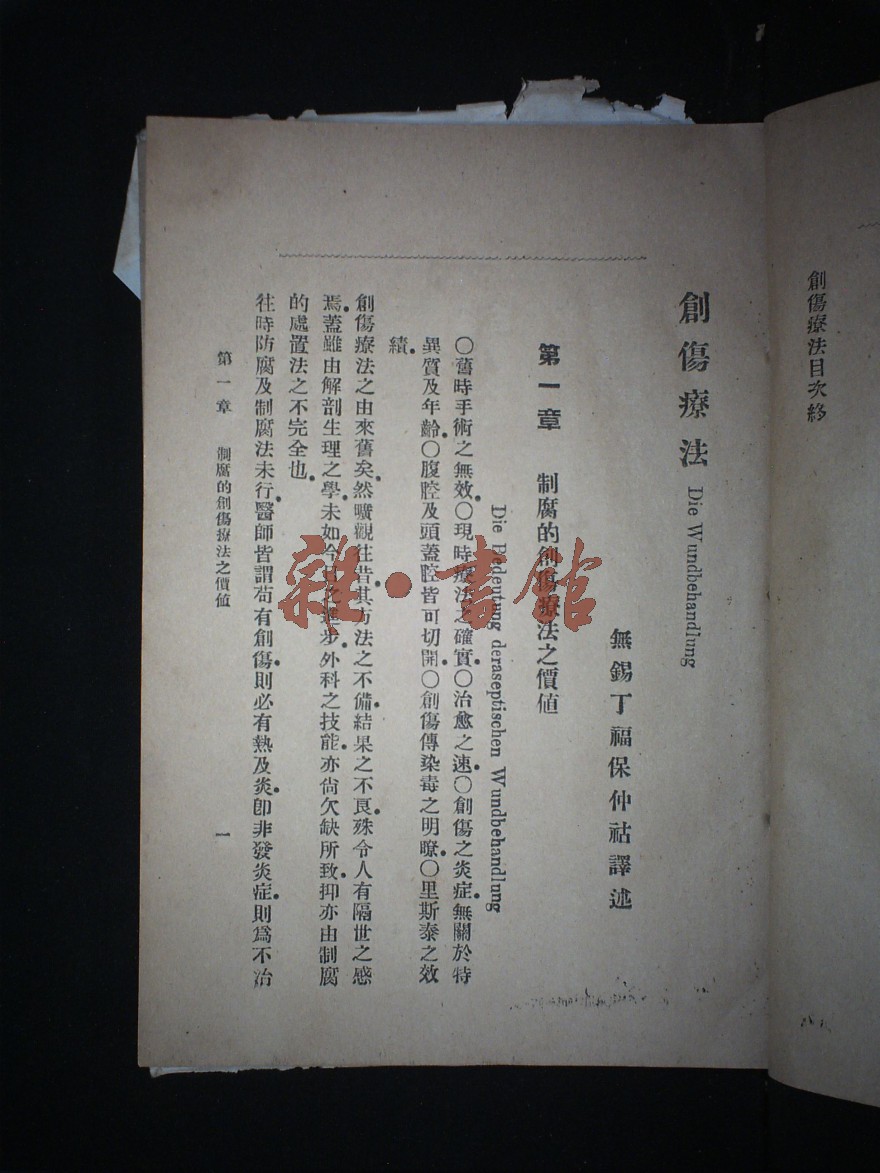 創傷療法目次終
創傷療法 Die Wundbehandlung
無錫丁福保仲祜譯述
第一章 制腐的創傷療法之價値
Die Bedeutung deraseptischen Wundbehandlung
〇舊時手術之無效。〇現時療法之確實。〇治愈之速。〇創傷之炎症。無關於特
異質及年齡。〇腹腔及頭蓋腔皆可切開。〇創傷傳染毒之明暸。〇里斯泰之效
績。
創傷療法之由來舊矣。然曠觀往昔。其方法之不備。結果之不良。殊令人有隔世之感
焉。蓋雖由解剖生理之學。未如今日之進步。外科之技能。亦尙欠缺所致。抑亦由制腐
的處置法之不完全也。
往時防腐及制腐法未行。醫師皆謂苟有創傷。則必有熱及炎。卽非發炎症。則爲不治
第一章 制腐的創傷療法之價値 一
雜·書館